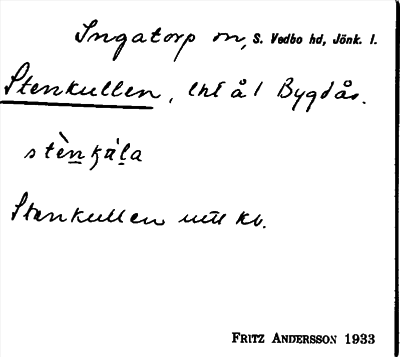 Ingatorp sn, S. Vedbo hd, Jönk. l.
Stenkullen, lht å l Bygdås.
Stenkullen utt kv.
FRITZ ANDERSSON 1933